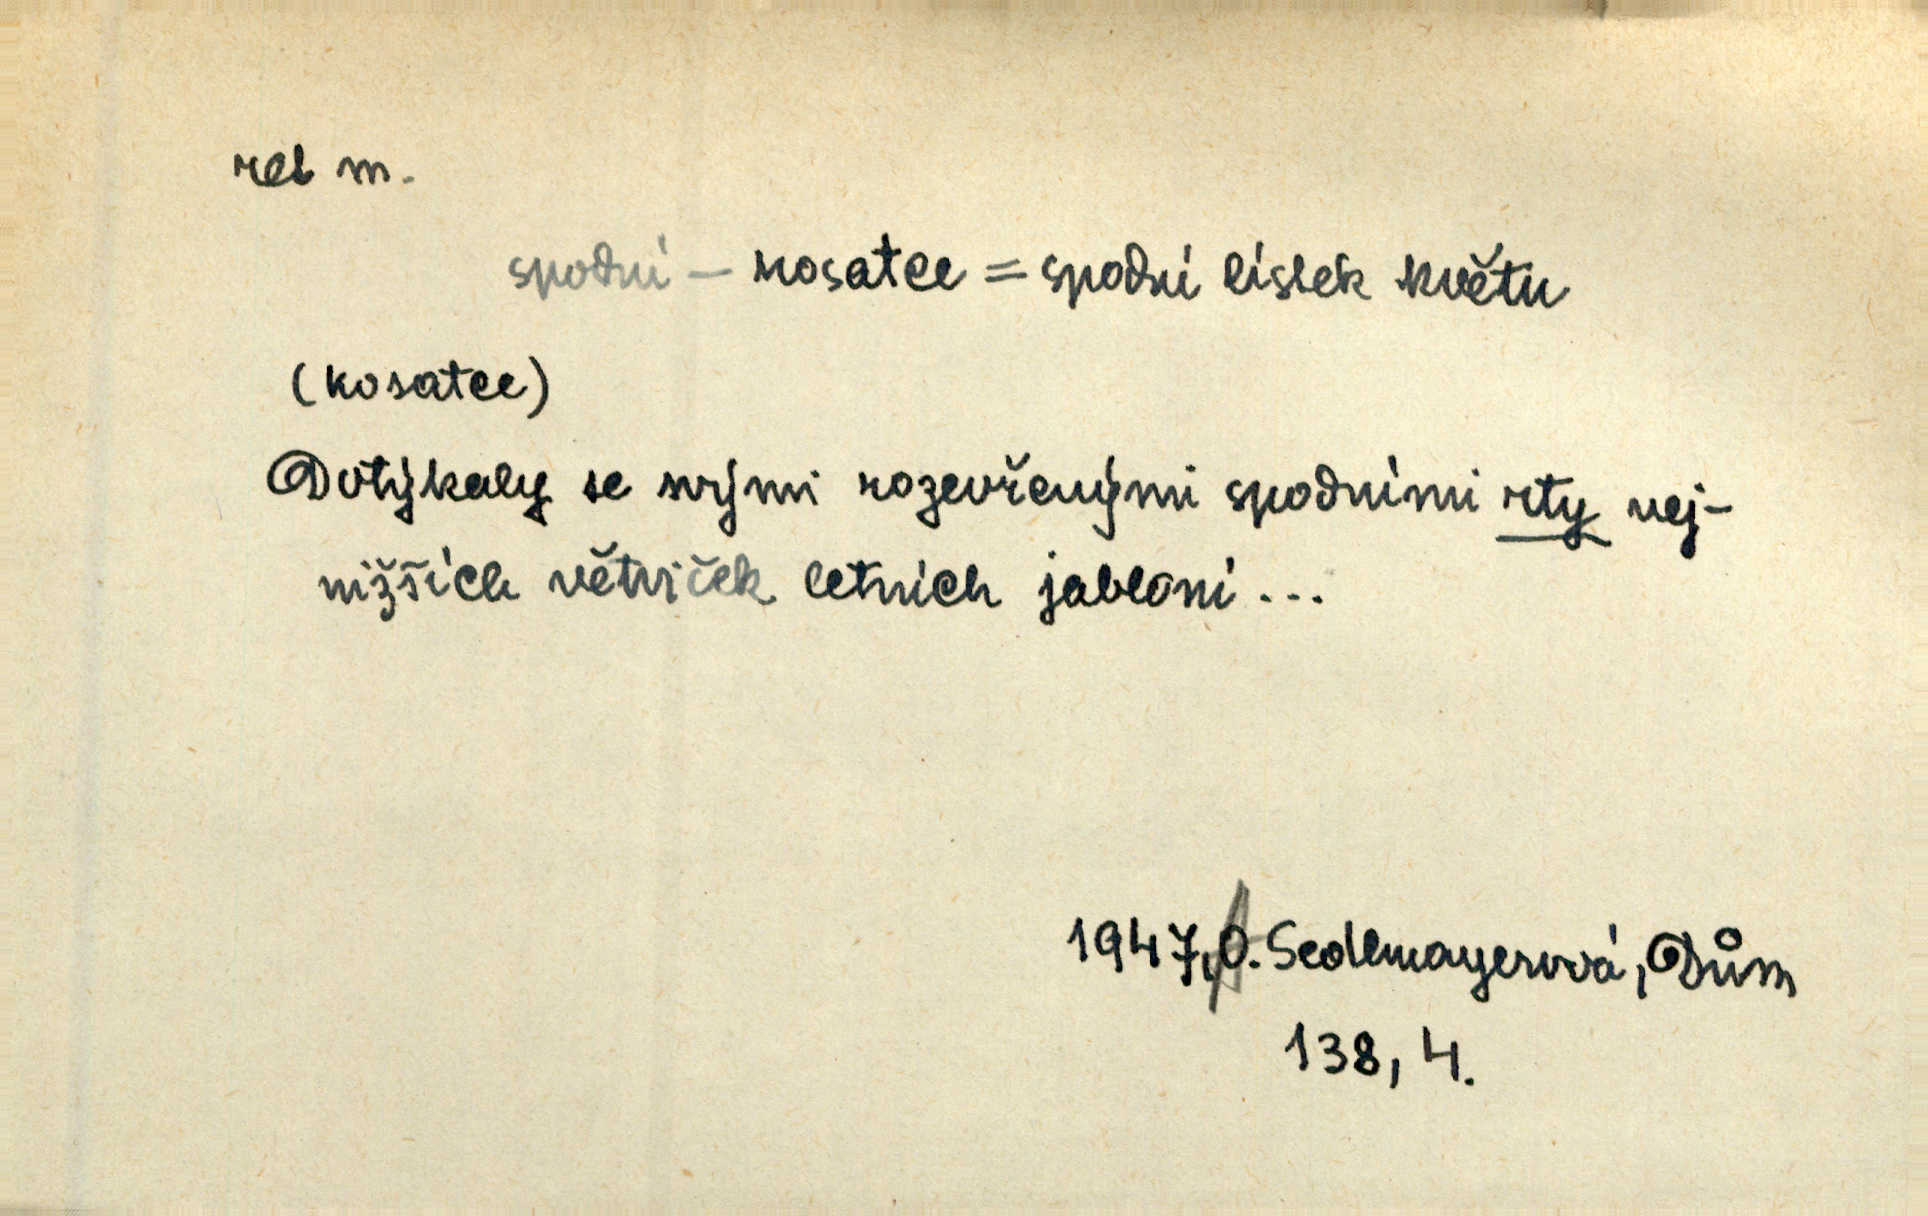 ret m.
spodní — kosatce = spodní lístek květu
(kosatce)
Dotýkaly se svými rozevřenými spodními rty nej-
nižších větviček letních jabloní...
1947, O. Sedlmayerová, Dům
138, 4.